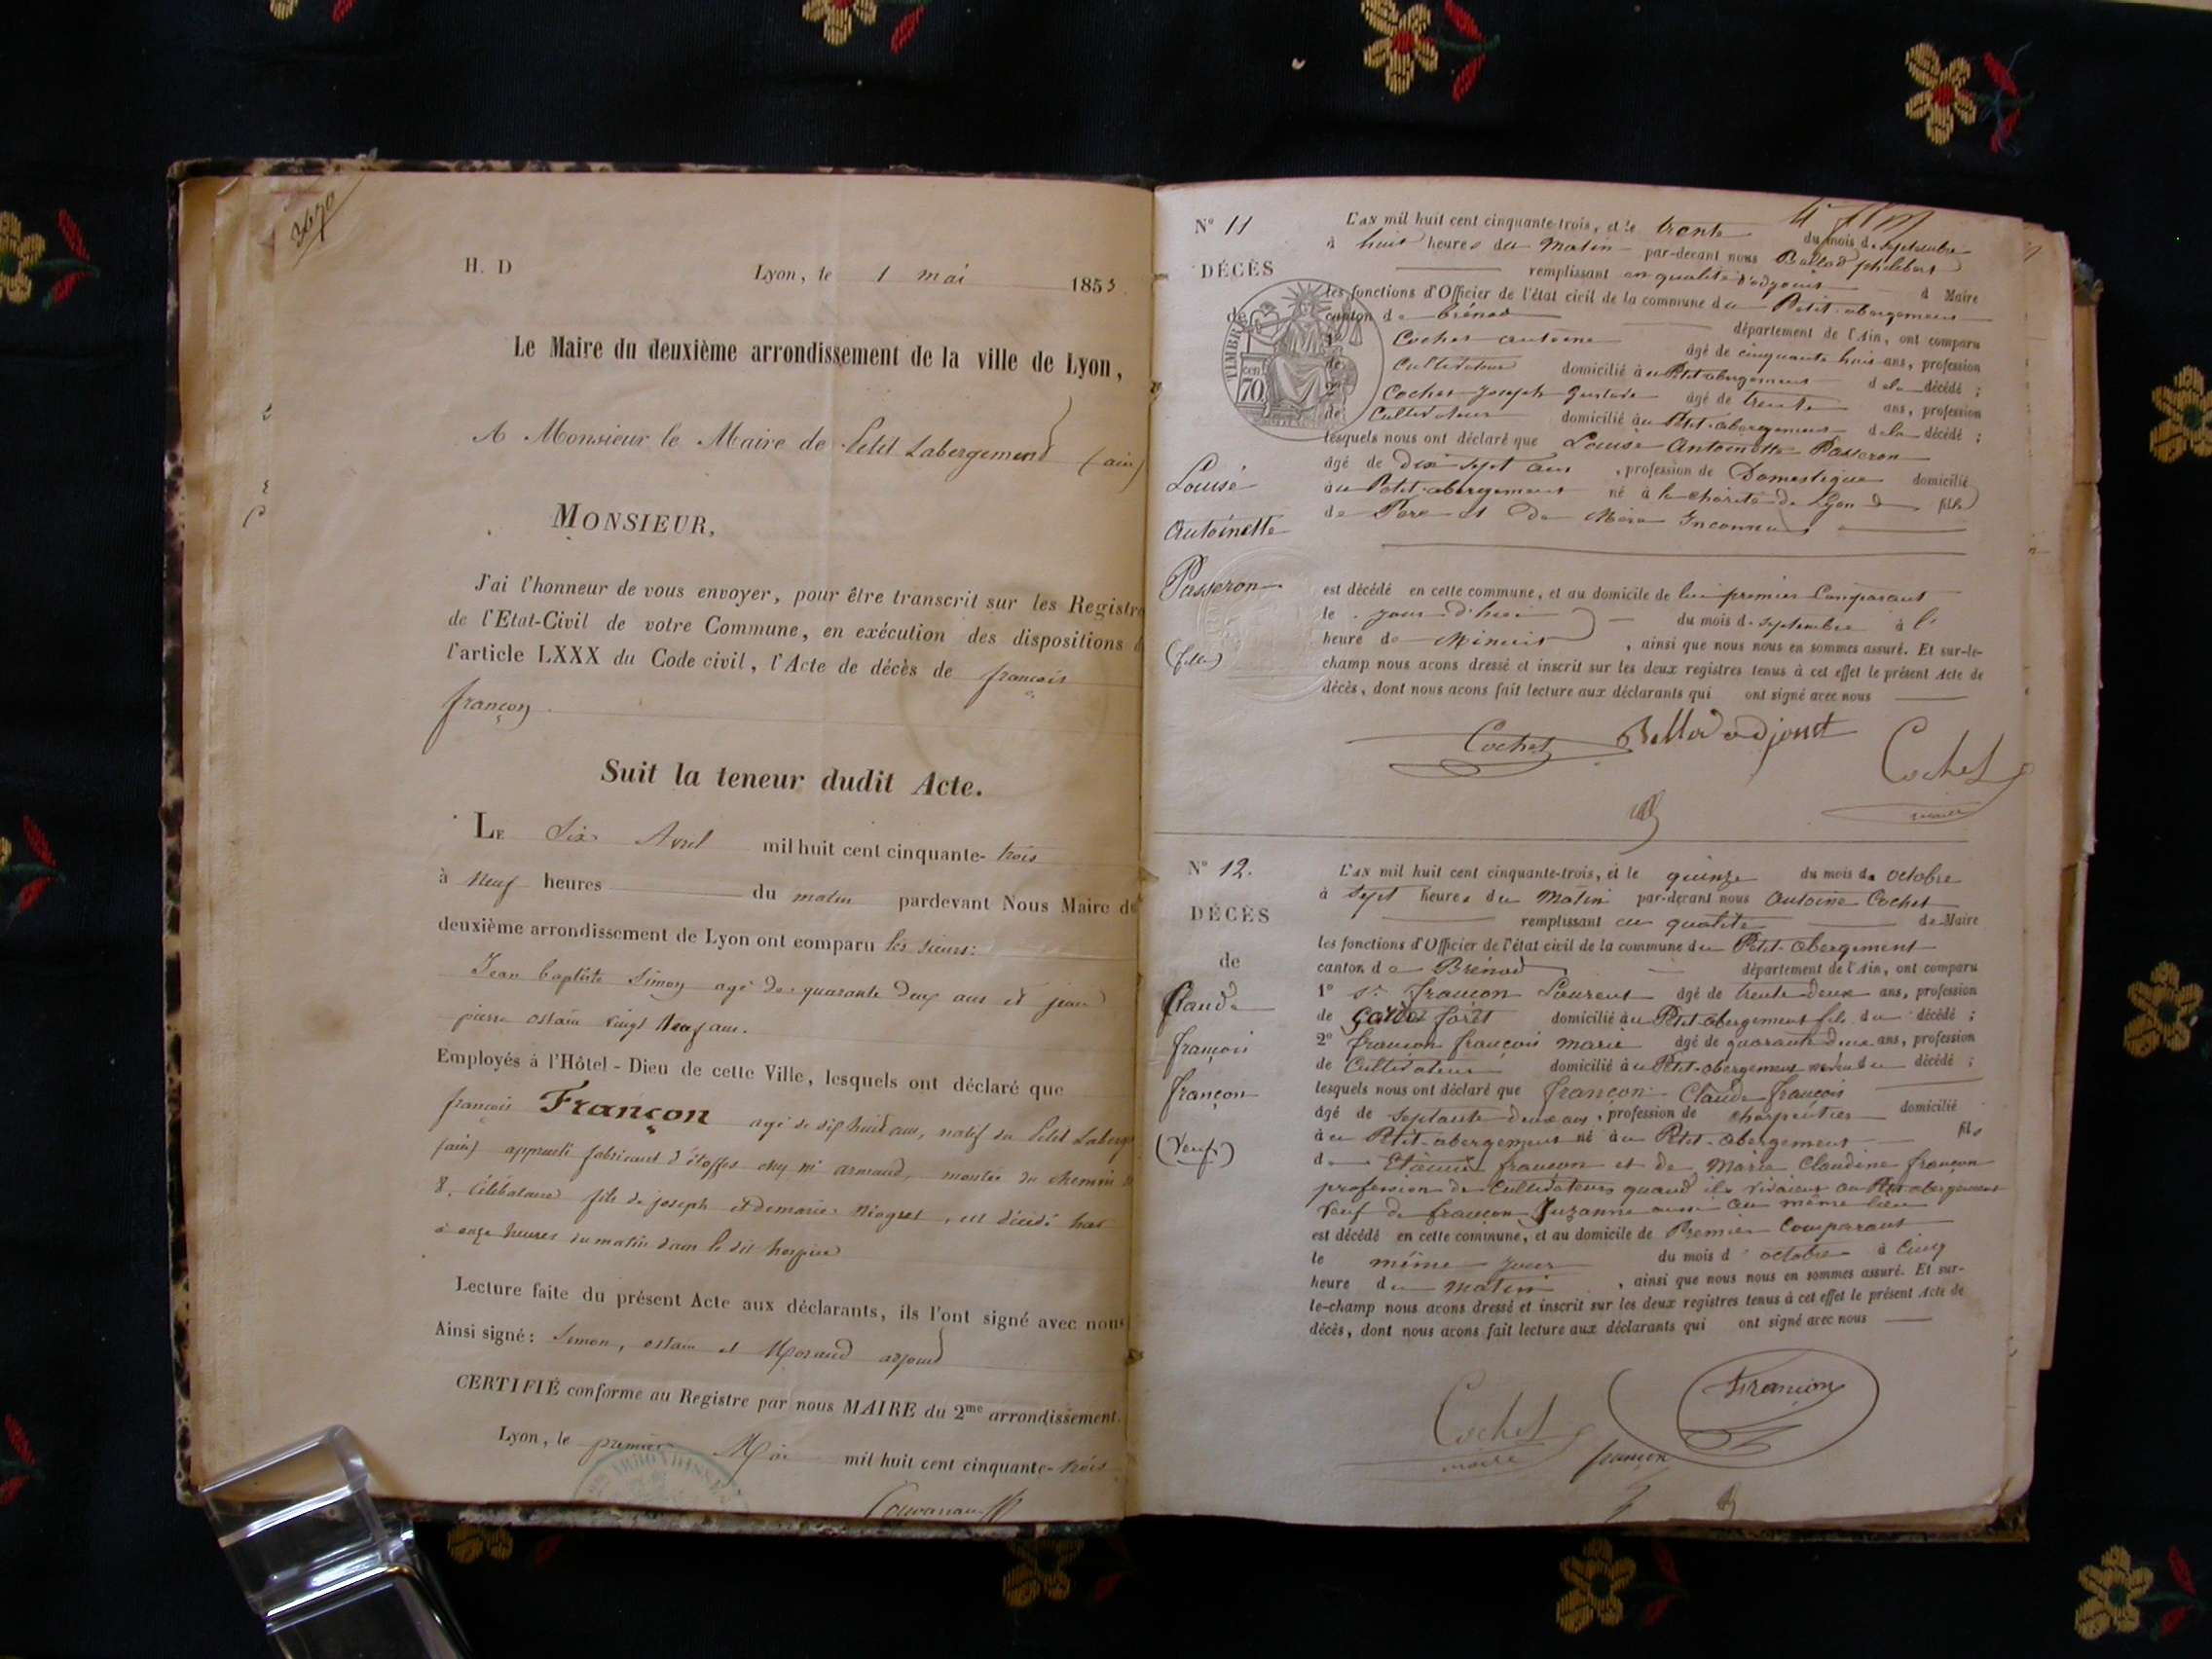 3670
H. D
Lyon, le 1 mai 1853
Le Maire du deuxième arrondissement de la ville de Lyon,
A Monsieur le Maire de Petit Labergement (ain)
MONSIEUR,
J'ai l'honneur de vous envoyer, pour être transcrit sur les Registre
de l'Etat-Civil de votre Commune, en exécution des dispositions
l'article LXXX du Code civil, l'Acte de décès de françois
françon
Suit la teneur dudit Acte.
LE Six Avril mil huit cent cinquante-trois
à Neuf heures du matin pardevant Nous Maire du
deuxième arrondissement de Lyon ont comparu les sieurs:
Jean baptiste Simon agé de quarante deux ans et jean
pierre ostain vingt neuf ans.
Employés à l'Hôtel-Dieu de cette Ville, lesquels ont déclaré que
françois Françon agé de dix huit ans, natif du Petit Laberge
(ain) apprenti fabricant d'étoffes chez mr armand, montée du chemin
8. Célibataire fils de joseph et de marie , est décédé hier
à onze heures du matin dans le dit hospice
Lecture faite du présent Acte aux déclarants, ils l'ont signé avec nous
Ainsi signé: Simon, ostain et Morand adjoint
CERTIFIÉ conforme au Registre par nous MAIRE du 2me arrondissement.
Lyon, le premier Mai mil huit cent cinquante-trois
N° 11
DÉCÈS
de
Louise
Antoinette
Passeron
(fille)
TIMBRE
cen 70
L'AN mil huit cent cinquante-trois, et le trente du mois de Septembre
à huit heures du Matin par-devant nous Ballad philibert
remplissant en qualité d'adjoint à Maire
les fonctions d'Officier de l'état civil de la commune du Petit-abergement
canton de brénod département de l'Ain, ont comparu
1° Cochet antoine âgé de cinquante huit ans, profession
de Cultivateur domicilié au Petit abergement de la décédé ;
2° Cochet Joseph Gustave âgé de trente ans, profession
de Cultivateur domicilié au Petit-abergement de la décédé ;
lesquels nous ont déclaré que Louise Antoinette Passeron
âgé de dix sept ans , profession de Domestique domicilié
au Petit-abergement né à la charité de Lyon fille
de Père et de Mère Inconnus
est décédé en cette commune, et au domicile de lui premier Comparant
le jour d'hui du mois de septembre à l'
heure de Minuit , ainsi que nous nous en sommes assuré. Et sur-le-
champ nous avons dressé et inscrit sur les deux registres tenus à cet effet le présent Acte de
décès, dont nous avons fait lecture aux déclarants qui ont signé avec nous
Cochet Ballad adjoint Cochet
maire
N° 12.
DÉCÈS
de
Claude
françois
françon
(Veuf)
L'AN mil huit cent cinquante-trois, et le quinze du mois de octobre
à sept heures du Matin par-devant nous Antoine Cochet
remplissant en qualité de Maire
les fonctions d'Officier de l'état civil de la commune du Petit-abergement
canton de Brénod département de l'Ain, ont comparu
1° Sr françon Laurent âgé de trente deux ans, profession
de garde forêt domicilié au Petit abergement fils du décédé ;
2° françon françois marie âgé de quarante deux ans, profession
de Cultivateur domicilié au Petit-abergement neveu du décédé ;
lesquels nous ont déclaré que françon Claude françois
âgé de septante deux ans , profession de charpentier domicilié
au Petit-abergement né au Petit-abergement fils
de Etienne françon et de Marie Claudine françon
profession de Cultivateurs quand ils vivaient au Petit-abergement
veuf de françon Suzanne aussi au même lieu
est décédé en cette commune, et au domicile de Premier Comparant
le même jour du mois d'octobre à cinq
heure du matin , ainsi que nous nous en sommes assuré. Et sur-
le-champ nous avons dressé et inscrit sur les deux registres tenus à cet effet le présent Acte de
décès, dont nous avons fait lecture aux déclarants qui ont signé avec nous
Cochet françon
maire françon